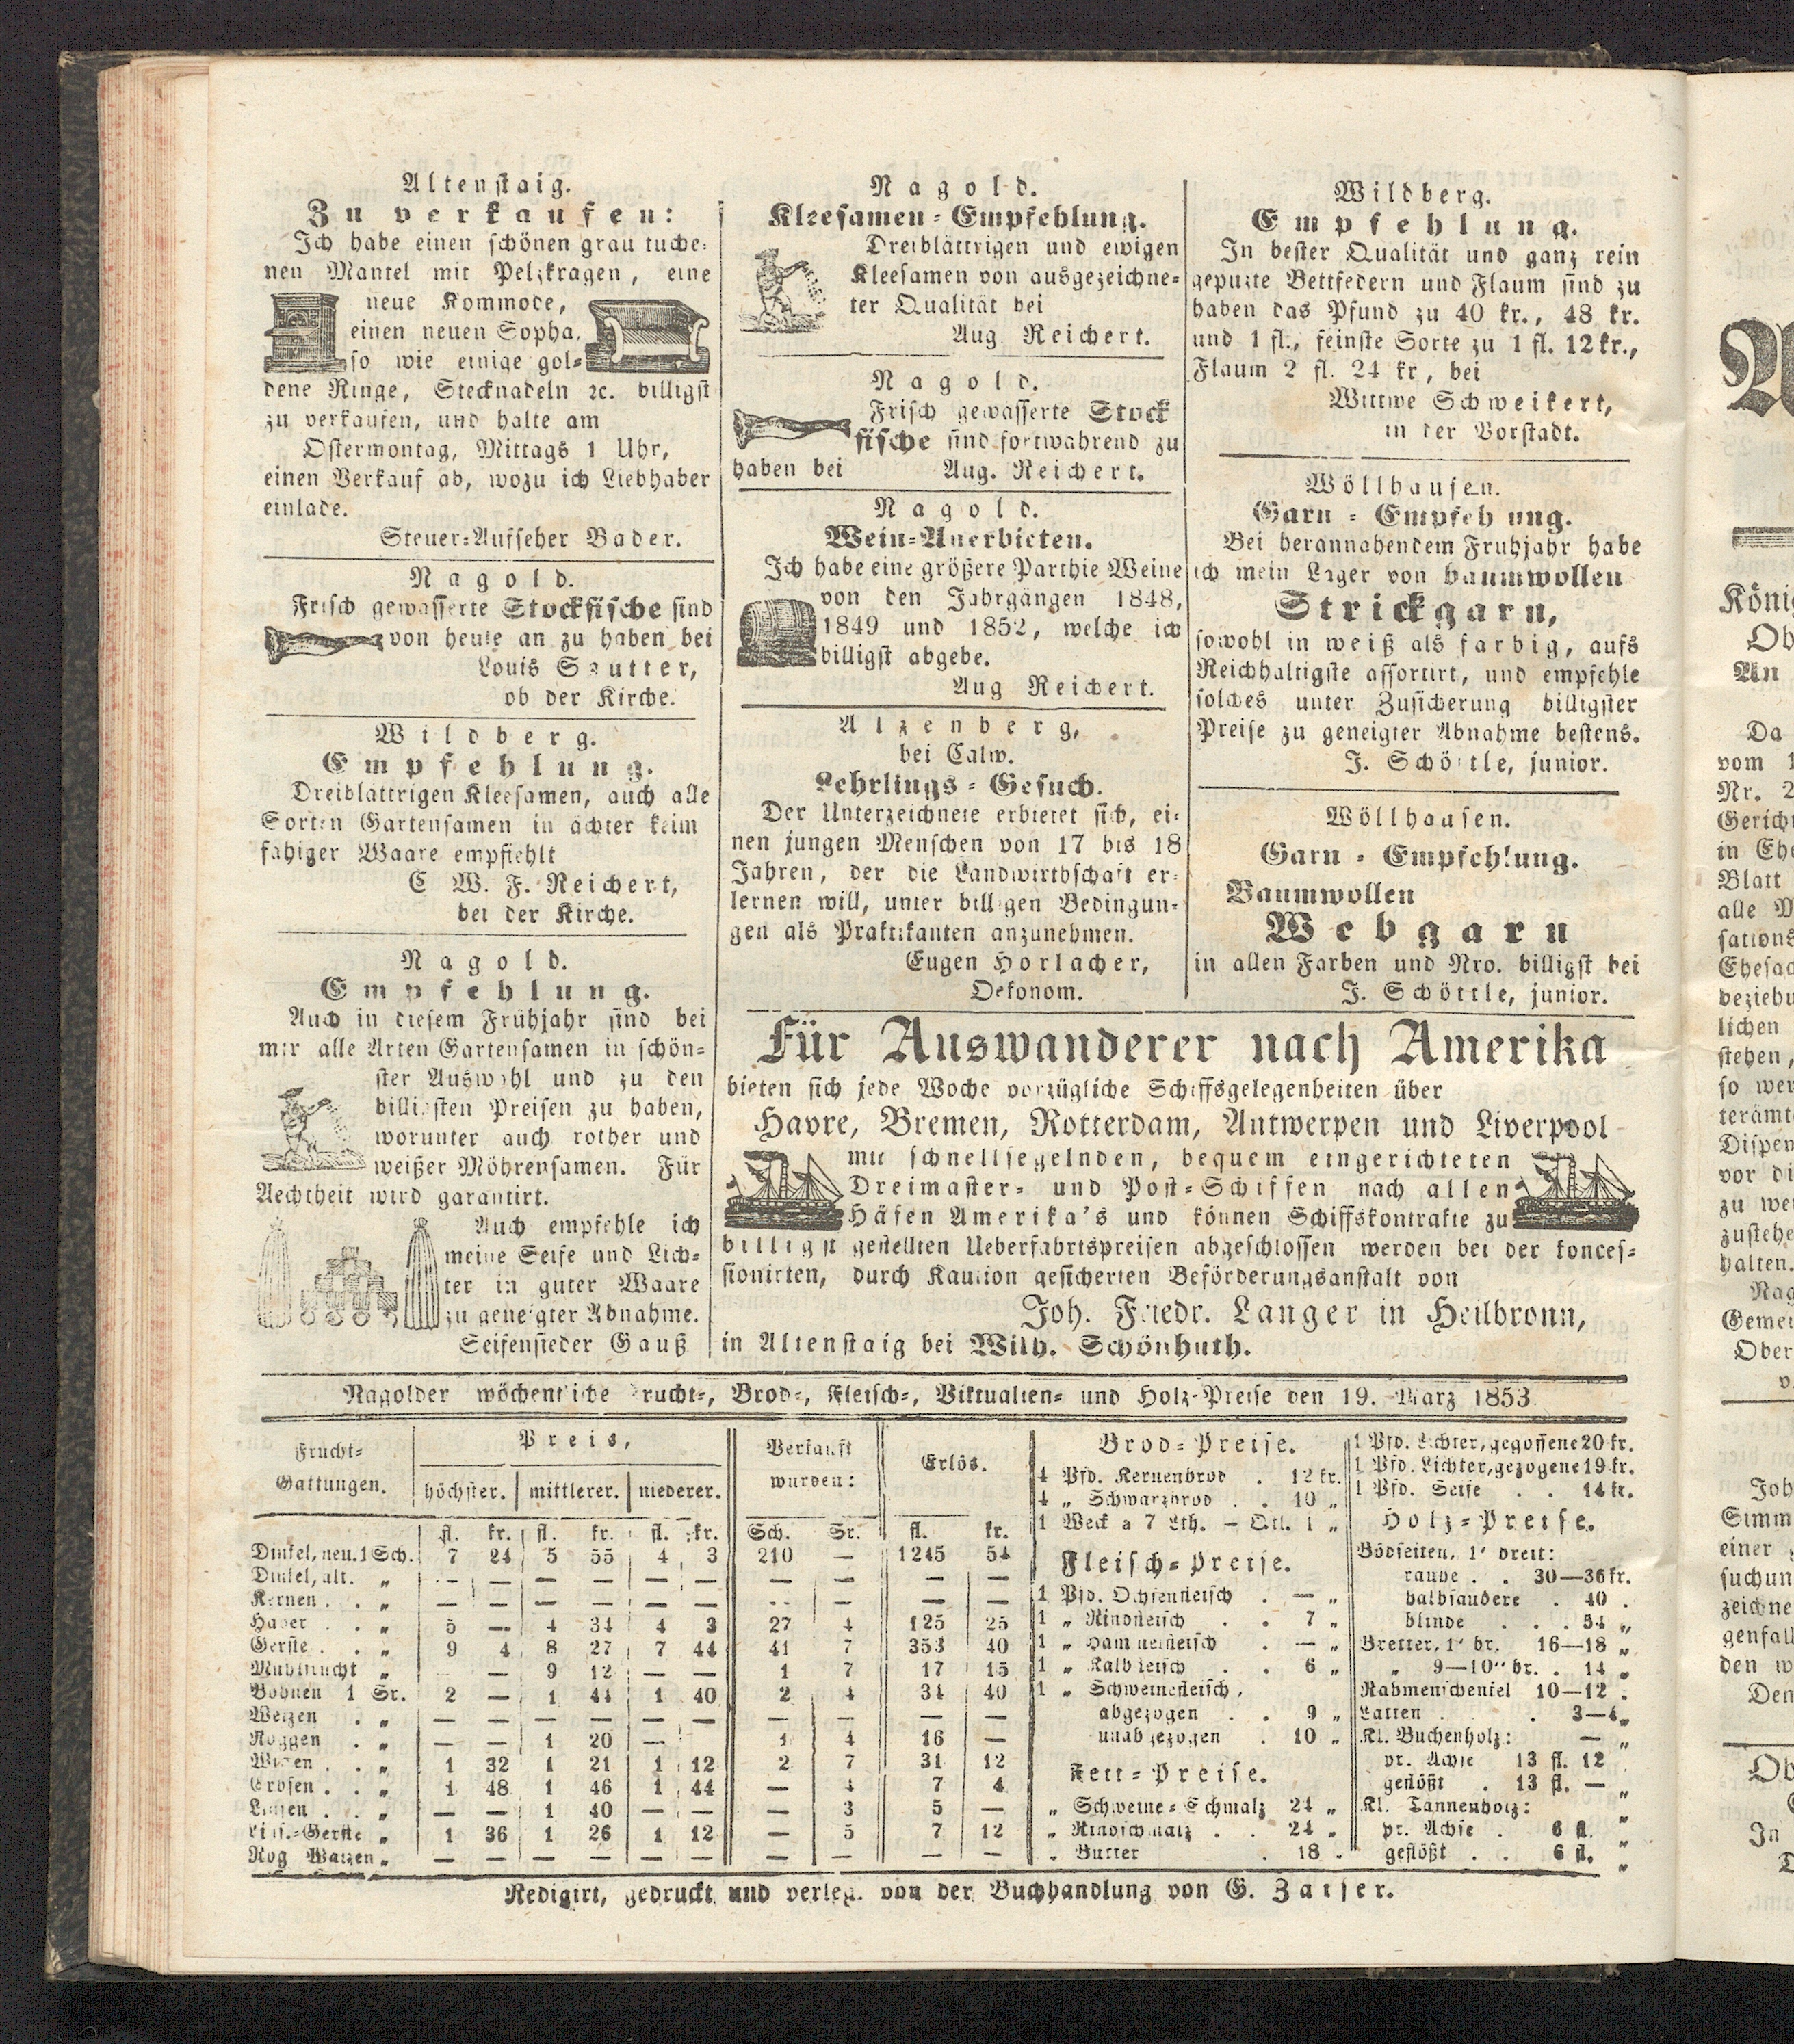 Altenstaig.
Zu verkaufen:
Ich habe einen schönen grau tuche-
nen Mantel mit Pelzkragen, eine
neue Kommode,
einen neuen Sopha,
so wie einige gol-
dene Ringe, Stecknadeln ꝛc. billigst
zu verkaufen, und halte am
Ostermontag, Mittags 1 Uhr,
einen Verkauf ab, wozu ich Liebhaber
einlade.
Steuer-Aufseher Bader.
Nagold.
Frisch gewässerte Stockfische sind
von heute an zu haben bei
Louis Sautter,
ob der Kirche.
Wildberg.
Empfehlung.
Dreiblättrigen Kleesamen, auch alle
Sorten Gartensamen in ächter keim
fähiger Waare empfiehlt
C W. F. Reichert,
bei der Kirche.
Nagold.
Empfehlung.
Auch in diesem Frühjahr sind bei
mir alle Arten Gartensamen in schön-
ster Auswahl und zu den
billigsten Preisen zu haben,
worunter auch rother und
weißer Möhrensamen. Für
Aechtheit wird garantirt.
Auch empfehle ich
meine Seife und Lich-
ter in guter Waare
zu geneigter Abnahme.
Seifensieder Gauß
Nagold.
Kleesamen-Empfehlung.
Dreiblättrigen und ewigen
Kleesamen von ausgezeichne-
ter Qualität bei
Aug Reichert.
Nagold.
Frisch gewässerte Stock
fische sind fortwährend zu
haben bei Aug. Reichert.
Nagold.
Wein-Anerbieten.
Ich habe eine größere Parthie Weine
von den Jahrgängen 1848,
1849 und 1852, welche ich
billigst abgebe.
Aug Reichert.
Alzenberg,
bei Calw.
Lehrlings-Gesuch.
Der Unterzeichnete erbietet sich, ei-
nen jungen Menschen von 17 bis 18
Jahren, der die Landwirthschaft er-
lernen will, unter billigen Bedingun-
gen als Praktikanten anzunehmen.
Eugen Horlacher,
Oekonom.
Wildberg.
Empfehlung.
In bester Qualität und ganz rein
gepuzte Bettfedern und Flaum sind zu
haben das Pfund zu 40 kr., 48 kr.
und 1 fl., feinste Sorte zu 1 fl. 12 kr.,
Flaum 2 fl. 24 kr, bei
Wittwe Schweikert,
in der Vorstadt.
Wöllhausen.
Garn-Empfehlung.
Bei herannahendem Frühjahr habe
ich mein Lager von baumwollen
Strickgarn,
sowohl in weiß als farbig, aufs
Reichhaltigste assortirt, und empfehle
solches unter Zusicherung billigster
Preise zu geneigter Abnahme bestens.
J. Schöttle, junior.
Wöllhausen.
Garn-Empfehlung.
Baumwollen
Webgarn
in allen Farben und Nro. billigst bei
J. Schöttle, junior.
Für Auswanderer nach Amerika
bieten sich jede Woche vorzügliche Schiffsgelegenheiten über
Havre, Bremen, Rotterdam, Antwerpen und Liverpool
mit schnellsegelnden, bequem eingerichteten
Dreimaster- und Post-Schiffen nach allen
Häfen Amerika's und können Schiffskontrakte zu
billigst gestellten Ueberfahrtspreisen abgeschlossen werden bei der konces-
sionirten, durch Kaution gesicherten Beförderungsanstalt von
Joh. Friedr. Langer in Heilbronn,
in Altenstaig bei Wilh. Schönhuth.
Nagolder wöchentliche Frucht-, Brod-, Fleisch-, Viktualien- und Holz-Preise den 19. März 1853.
Frucht-Gattungen. Preis, Verkauft wurden: Erlös.
höchster. mittlerer. niederer.
fl. kr. fl. kr. fl. kr. Sch. Sr. fl. kr.
Dinkel, neu. 1 Sch. 7 24 5 55 4 3 210 — 1245 54
Dinkel, alt. „ — — — — — — — — — —
Kernen . . „ — — — — — — — — — —
Haber . . „ 5 — 4 34 4 3 27 4 125 25
Gerste . . „ 9 4 8 27 7 44 41 7 353 40
Mühlfrucht „ — — 9 12 — — 1 7 17 15
Bohnen 1 Sr. 2 — 1 44 1 40 2 4 34 40
Weizen . „ — — — — — — — — — —
Roggen . „ — — 1 20 — 1 4 16 —
Wicken . . „ 1 32 1 21 1 12 2 7 31 12
Erbsen . . „ 1 48 1 46 1 44 — 4 7 4
Linsen . . „ — — 1 40 — — — 3 5 —
Lins.-Gerste „ 1 36 1 26 1 12 — 5 7 12
Rog Waizen „ — — — — — — — — — —
Brod-Preise.
4 Pfd. Kernenbrod . 12 kr.
4 „ Schwarzbrod . . 10 „
1 Weck a 7 Lth. — Qtl. 1 „
Fleisch-Preise.
1 Pfd. Ochsenfleisch . — „
1 „ Rindfleisch . . 7 „
1 „ Hammelfleisch . — „
1 „ Kalbfleisch . . 6 „
1 „ Schweinefleisch,
abgezogen . . 9 „
unabgezogen . 10 „
Fett-Preise.
„ Schweine-Schmalz 24 „
„ Rindschmalz . . 24 „
„ Butter . 18 „
1 Pfd. Lichter, gegossene 20 kr.
1 Pfd. Lichter, gezogene 19 kr.
1 Pfd. Seife . . 14 kr.
Holz-Preise.
Bödseiten, 1' breit:
rauhe . . 30—36 kr.
halbsaubere . 40 .
blinde . . . 54 „
Bretter, 1' br. 16—18 „
„ 9—10" br. . 14 „
Rahmenschenkel 10—12 .
Latten . . 3—4 „
Kl. Buchenholz: — „
pr. Achse 13 fl. 12
geflößt . 13 fl. — „
Kl. Tannenholz: „
pr. Achse . 6 fl. „
geflößt . . 6 fl. „
Redigirt, gedruckt und verleg. von der Buchhandlung von G. Zaiser.
A
König
Ob
An
Da
vom 1
Nr. 2
Gerich
in Ehe
Blatt
alle M
sations
Ehesac
beziehu
lichen
stehen,
so wer
terämt
Dispen
vor di
zu wei
zustehe
halten.
Nag
Gemei
Ober
v.
Joh
Simm
einer
suchun
zeichne
genfall
den w
Den
Ob
In